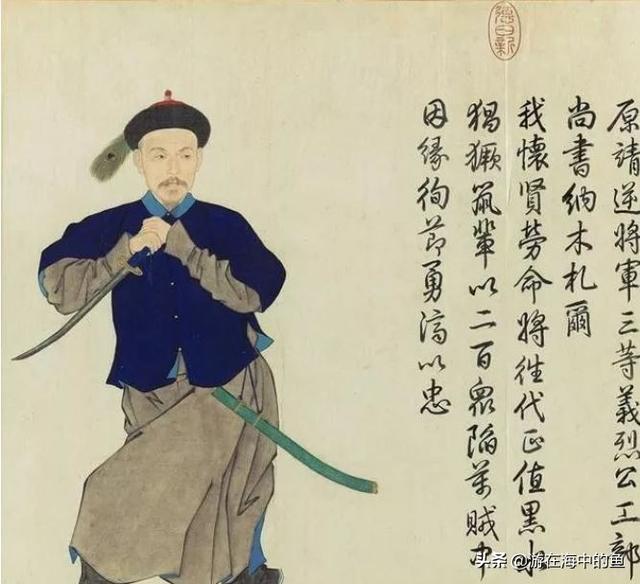 原靖逆將軍三等義烈公工部
尚書納木札爾
我懷賢勞命將往代正值黑水
猖獗鼠輩以二百衆陷萬賊中
因緣徇節勇濟以忠
德日新
头条 @游在海中的鱼